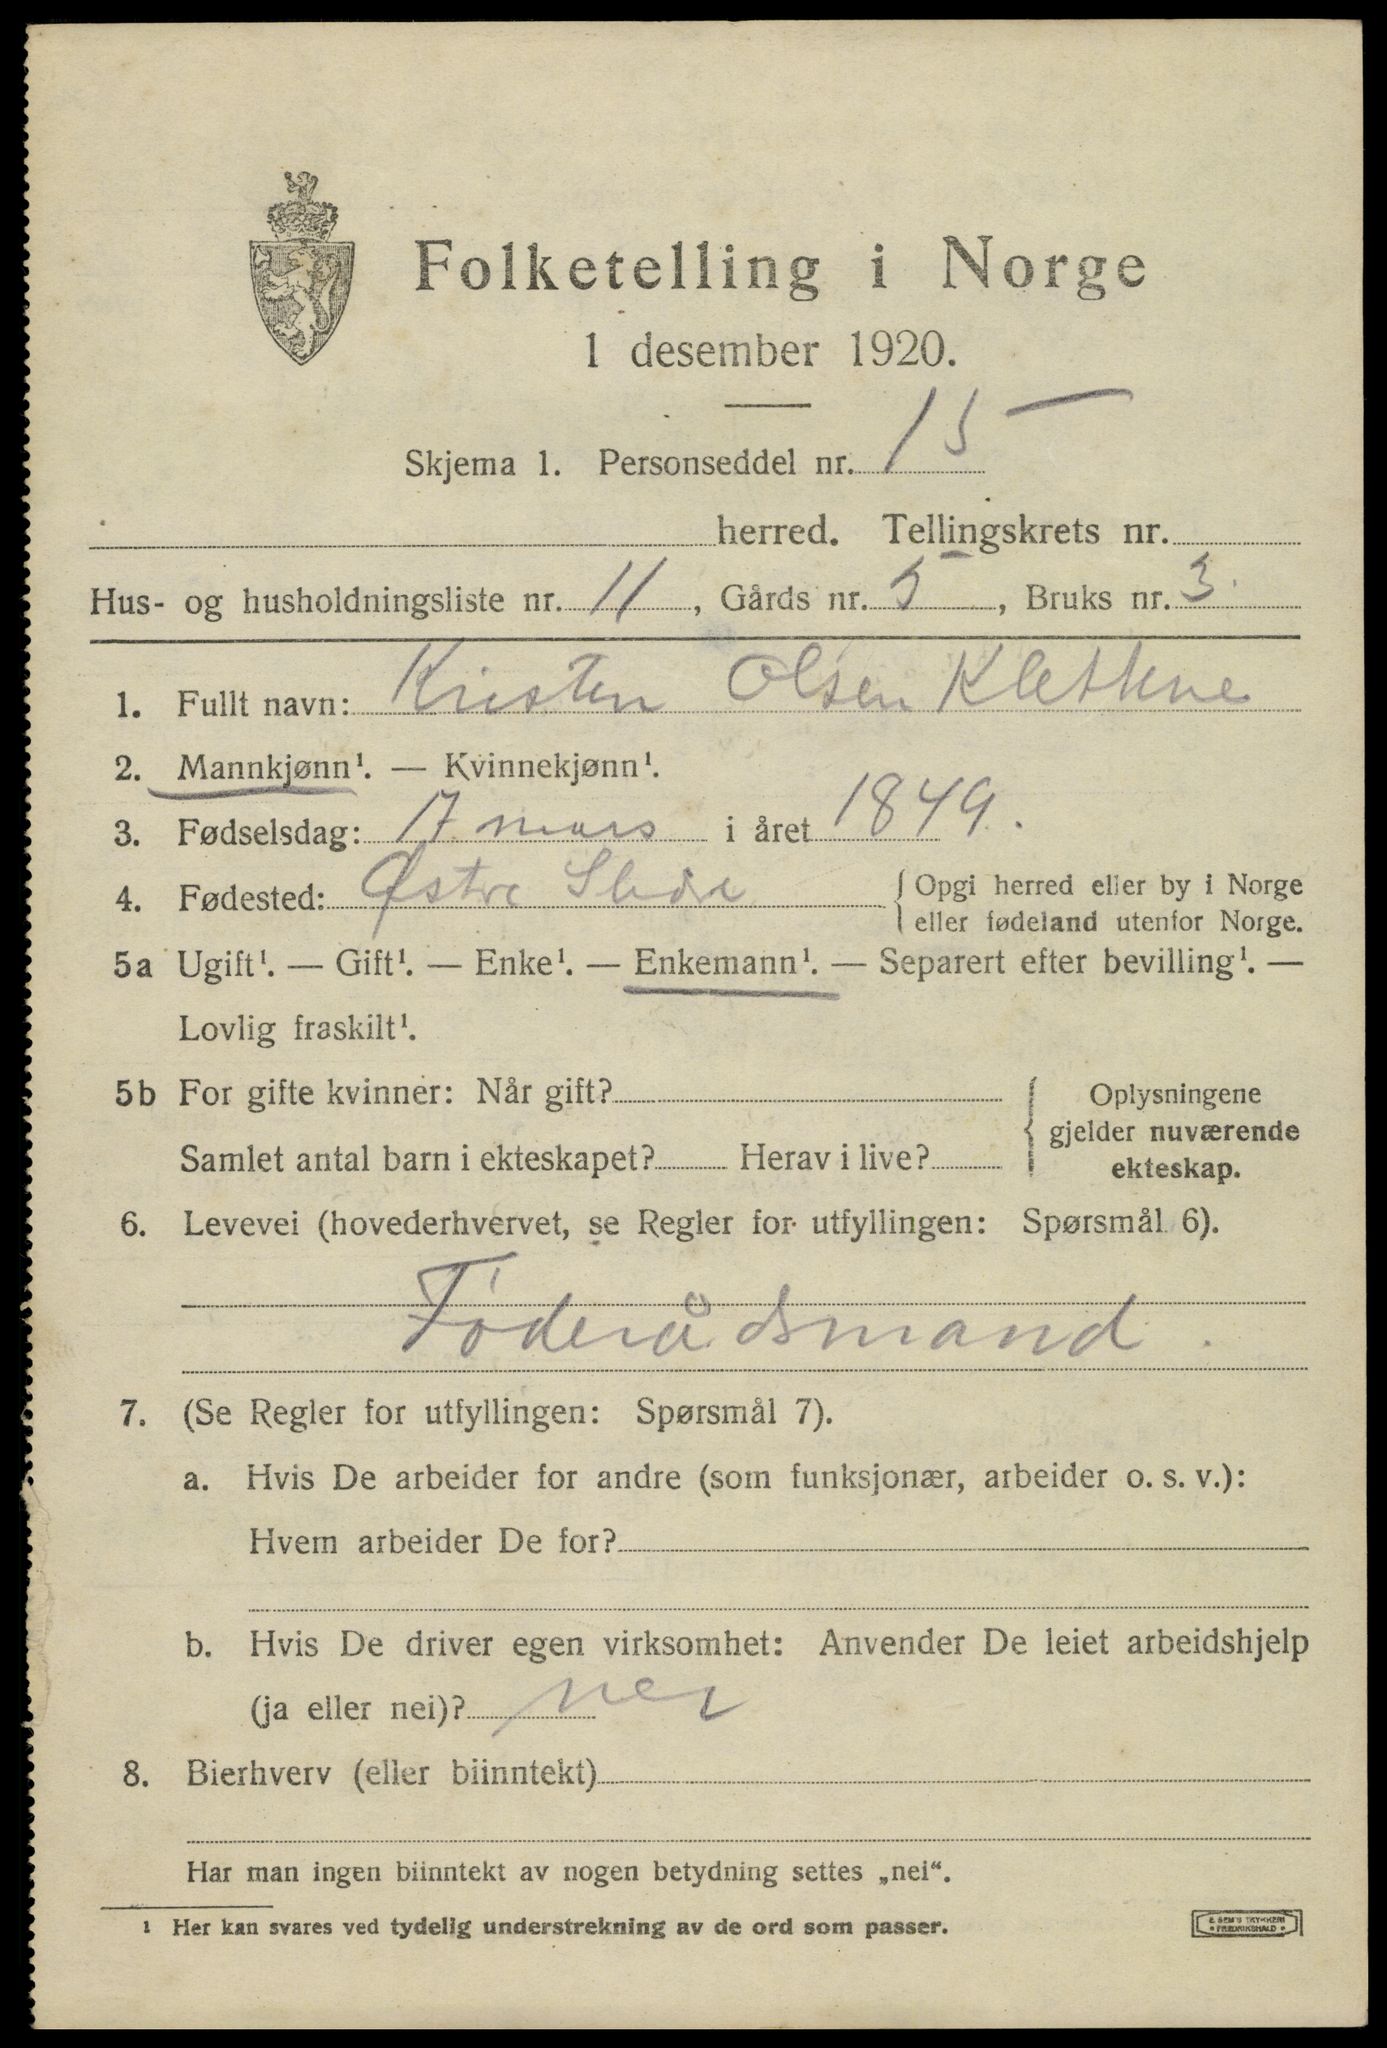 Folketelling i Norge
1 desember 1920.
Skjema 1. Personseddel nr. 15
herred. Tellingskrets nr.
Hus- og husholdningsliste nr. 11, Gårds nr. 5, Bruks nr. 3
1. Fullt navn: Kristen Olsen Klettene
2. Mannkjønn¹. — Kvinnekjønn¹.
3. Fødselsdag: 17 mars i året 1849.
4. Fødested: Østre Slidre { Opgi herred eller by i Norge
eller fødeland utenfor Norge.
5a Ugift¹. — Gift¹. — Enke¹. — Enkemann¹. — Separert efter bevilling¹. —
Lovlig fraskilt¹.
5b For gifte kvinner: Når gift? { Oplysningene
gjelder nuværende
Samlet antal barn i ekteskapet? Herav i live?
ekteskap.
6. Levevei (hovederhvervet, se Regler for utfyllingen: Spørsmål 6).
Føderådsmand.
7. (Se Regler for utfyllingen: Spørsmål 7).
a. Hvis De arbeider for andre (som funksjonær, arbeider o. s. v.):
Hvem arbeider De for?
b. Hvis De driver egen virksomhet: Anvender De leiet arbeidshjelp
(ja eller nei)? nei
8. Bierhverv (eller biinntekt)
Har man ingen biinntekt av nogen betydning settes „nei“.
1 Her kan svares ved tydelig understrekning av de ord som passer.
E. SEM'S TRYKKERI
• FREDRIKSHALD •